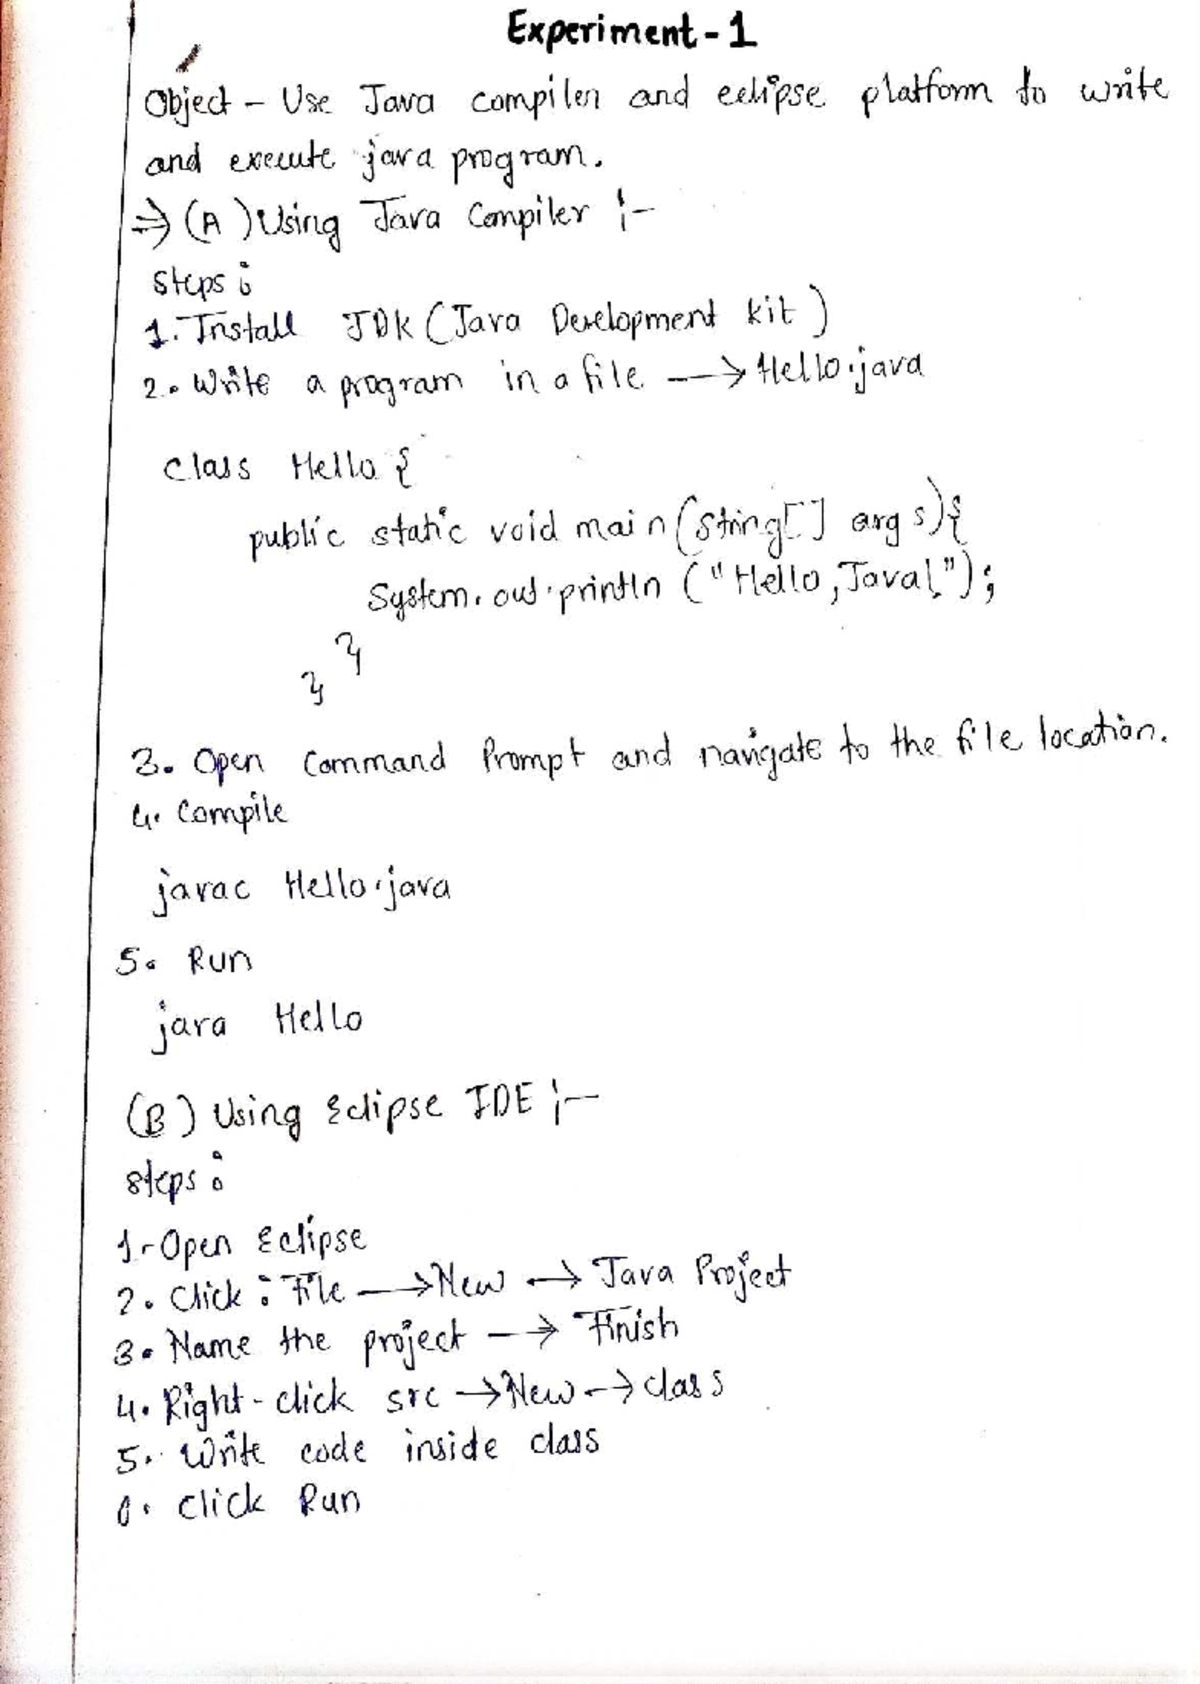 Experiment-1
Object - Use Java compiler and eclipse platform to write
and execute java program.
⇒ (A) Using Java Compiler :-
Steps :
1. Install JDK (Java Development kit)
2. Write a program in a file → Hello.java
class Hello {
public static void main(String[] args){
System.out.println ("Hello, Java!");
}
}
3. Open Command Prompt and navigate to the file location.
4. Compile
javac Hello.java
5. Run
java Hello
(B) Using Eclipse IDE :-
steps :
1. Open Eclipse
2. Click : File → New → Java Project
3. Name the project → Finish
4. Right-click src → New → class
5. Write code inside class
6. Click Run